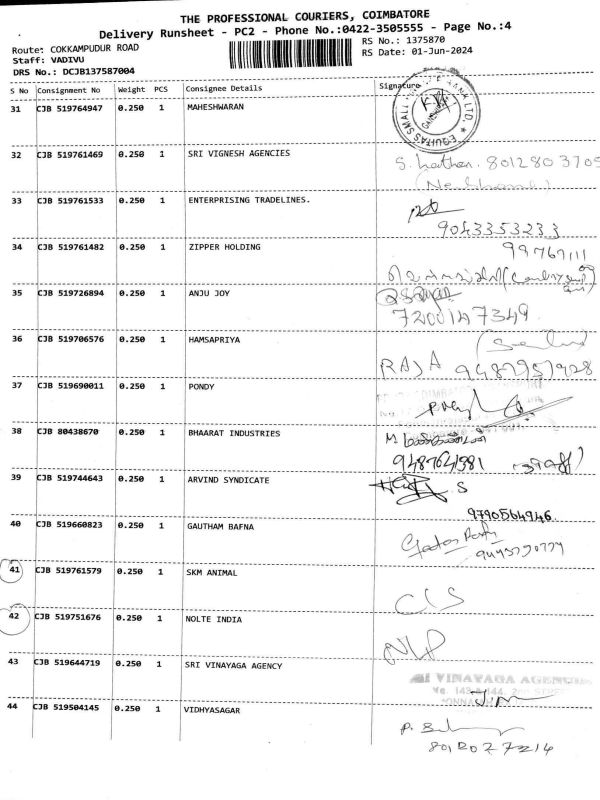 THE PROFESSIONAL COURIERS, COIMBATORE
Delivery Runsheet - PC2 - Phone No.:0422-3505555 - Page No.:4
Route: COKKAMPUDUR ROAD
RS No.: 1375870
Staff: VADIVU
RS Date: 01-Jun-2024
DRS No.: DCJB137587004
S No Consignment No Weight PCS Consignee Details Signature
31 CJB 519764947 0.250 1 MAHESHWARAN
EQUITAS SMALL BANK LTD.
32 CJB 519761469 0.250 1 SRI VIGNESH AGENCIES
33 CJB 519761533 0.250 1 ENTERPRISING TRADELINES.
9043353233
34 CJB 519761482 0.250 1 ZIPPER HOLDING
35 CJB 519726894 0.250 1 ANJU JOY
7200147349
36 CJB 519706576 0.250 1 HAMSAPRIYA
RAJA
37 CJB 519690011 0.250 1 PONDY
38 CJB 80438670 0.250 1 BHAARAT INDUSTRIES
39 CJB 519744643 0.250 1 ARVIND SYNDICATE
S
9790564946
40 CJB 519660823 0.250 1 GAUTHAM BAFNA
41 CJB 519761579 0.250 1 SKM ANIMAL
42 CJB 519751676 0.250 1 NOLTE INDIA
43 CJB 519644719 0.250 1 SRI VINAYAGA AGENCY
VINAYAGA
44 CJB 519504145 0.250 1 VIDHYASAGAR
8012027214